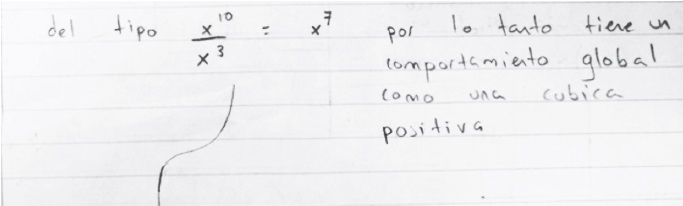 del tipo x¹⁰/x³ = x⁷ por lo tanto tiene un
comportamiento global
como una cubica
positiva